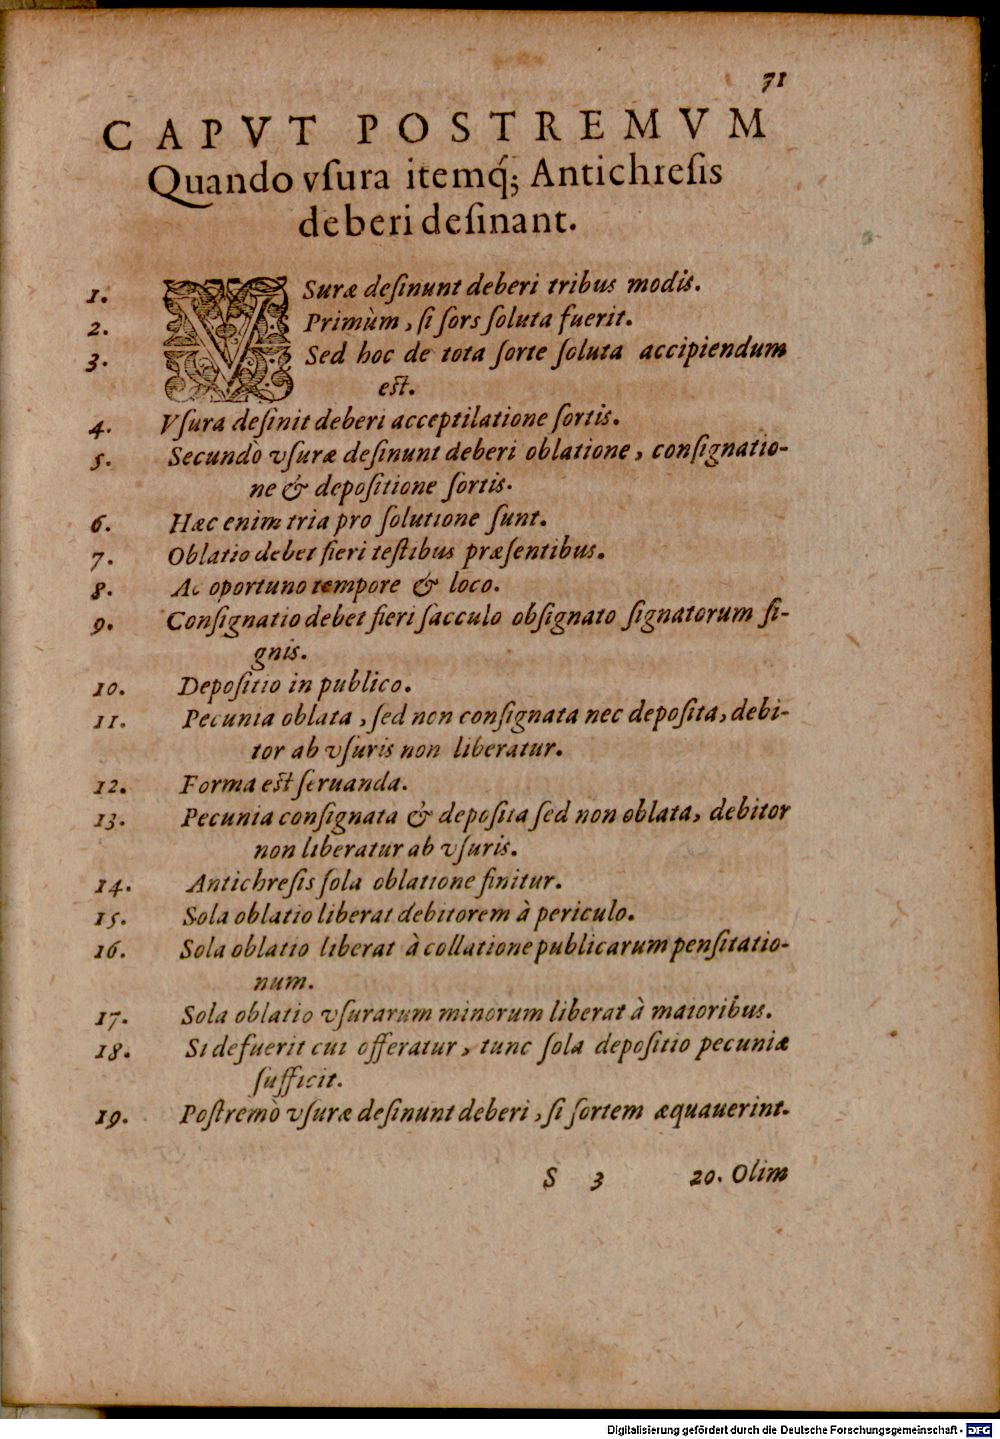 71
CAPVT POSTREMVM
Quando vſura itemq́; Antichreſis
deberi deſinant.
1. VSuræ deſinunt deberi tribus modis.
2. Primùm, ſi ſors ſoluta fuerit.
3. Sed hoc de tota ſorte ſoluta accipiendum
eſt.
4. Vſura deſinit deberi acceptilatione ſortis.
5. Secundò vſuræ deſinunt deberi oblatione, conſignatio-
ne & depoſitione ſortis.
6. Hæc enim tria pro ſolutione ſunt.
7. Oblatio debet fieri teſtibus præſentibus.
8. Ac oportuno tempore & loco.
9. Conſignatio debet fieri ſacculo obſignato ſignatorum ſi-
gnis.
10. Depoſitio in publico.
11. Pecunia oblata, ſed non conſignata nec depoſita, debi-
tor ab vſuris non liberatur.
12. Forma eſt ſeruanda.
13. Pecunia conſignata & depoſita ſed non oblata, debitor
non liberatur ab vſuris.
14. Antichreſis ſola oblatione finitur.
15. Sola oblatio liberat debitorem à periculo.
16. Sola oblatio liberat à collatione publicarum penſitatio-
num.
17. Sola oblatio vſurarum minorum liberat à maioribus.
18. Si defuerit cui offeratur, tunc ſola depoſitio pecuniæ
ſufficit.
19. Poſtremò vſuræ deſinunt deberi, ſi ſortem æquauerint.
S 3 20. Olim
Digitalisierung gefördert durch die Deutsche Forschungsgemeinschaft - DFG